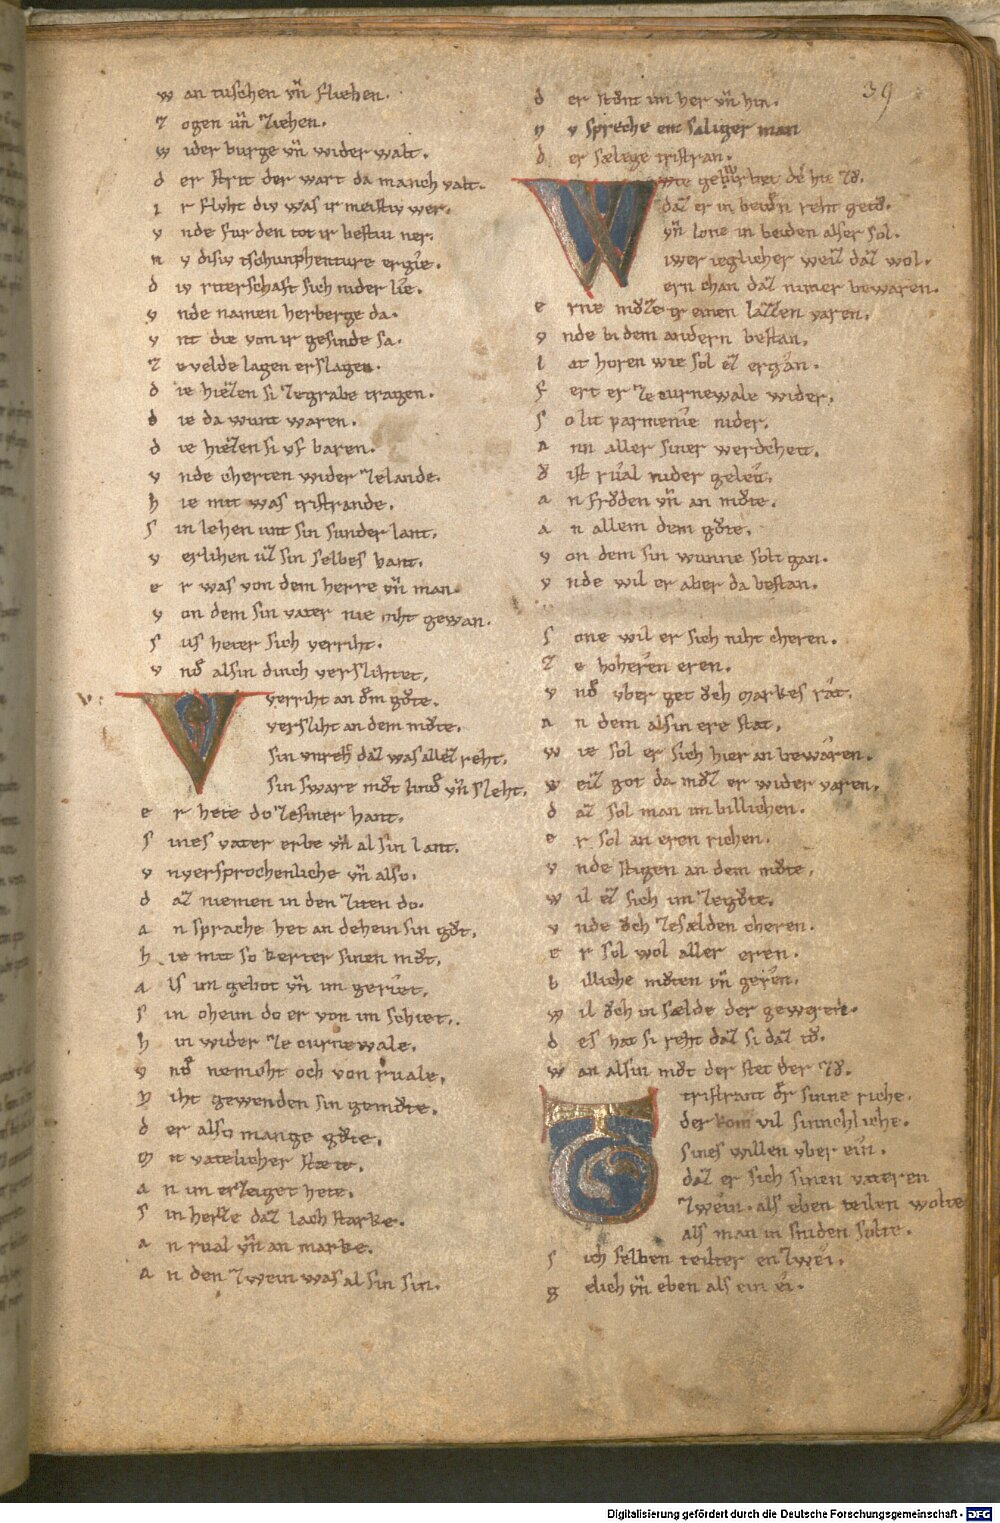 39
w an tuschen vn̄ fliehen.
z ogen vn̄ ziehen.
w ider burge vn̄ wider walt.
d er strit der wart da manch valt.
i r flvht div was ir meistiv wer.
v nde fur den tot ir bestiu ner.
n v disiv tschunphenture ergie.
d iv riterschaft sich nider lie.
v nde namen herberge da.
v nt die von ir gesinde sa.
z e velde lagen erslagen.
d ie hiezen si zegrabe tragen.
d ie da wunt waren.
d ie hiezen si vf baren.
v nde cherten wider zelande.
h ie mit was tristrande.
s in lehen unt sin sunder lant.
v erlihen uz sin selbes hant.
e r was von dem herre vn̄ man.
v on dem sin vater nie niht gewan.
s us heter sich verriht.
v nd alsin dinch verslihtet.
V verriht an dem gůte.
versliht an dem můte.
sin vnreht daz was allez reht.
sin sware můt lind vn̄ sleht.
e r hete do zesiner hant.
s ines vater erbe vn̄ al sin lant.
v nversprochenliche vn̄ also.
d az niemen in den ziten do.
a n sprache het an dehein sin gůt.
h ie mit so kerter sinen můt.
a ls im gebot vn̄ im geriet.
s in oheim do er von im schiet.
h in wider ze curnewale.
v nd nemoht och von ruale.
n iht gewenden sin gemůte.
d er also mange gůte.
m it vatelicher stæte.
a n im erzeiget hete.
s in herze daz lach starke.
a n rual vn̄ an marke.
a n den zwein was al sin sin.
d er stůnt im her vn̄ hin.
n v spreche ein saliger man
d er sælege tristran.
W wie gebůrbet der hie zů.
daz er in beiden reht getů.
vn̄ lone in beiden alser sol.
iwer ieglicher weiz daz wol.
ern chan daz nimer bewaren.
e rne můze ir einen lazzen varen.
v nde bi dem andern bestan.
l at horen wie sol ez ergan.
f ert er ze curnewale wider.
s o lit parmenie nider.
a nn aller siner werdcheit.
d ist rual nider geleit.
a n frůden vn̄ an můte.
a n allem dem gůte.
v on dem sin wunne solt gan.
v nde wil er aber da bestan.
s one wil er sich niht cheren.
z e hoheren eren.
v nd vber get ůch markes rat.
a n dem alsin ere stat.
w ie sol er sich hier an bewaren.
w eiz got da můz er wider varen.
d az sol man im billichen.
e r sol an eren richen.
v nde stigen an dem můte.
w il ez sich im zegůte.
v nde ůch zesælden cheren.
e r sol wol aller eren.
b illiche můten vn̄ geren.
w il ůch in sælde der geweren.
d es hat si reht daz si daz tů.
w an alsin můt der stet der zů.
T tristrant der sinne riche.
der kom vil sinnchliche.
sines willen vber ein.
daz er sich sinen vateren
zwein. als eben teilen wolte
als man in sniden solte.
s ich selben teilter enzwei.
g elich vn̄ eben als ein ei.
Digitalisierung gefördert durch die Deutsche Forschungsgemeinschaft - DFG